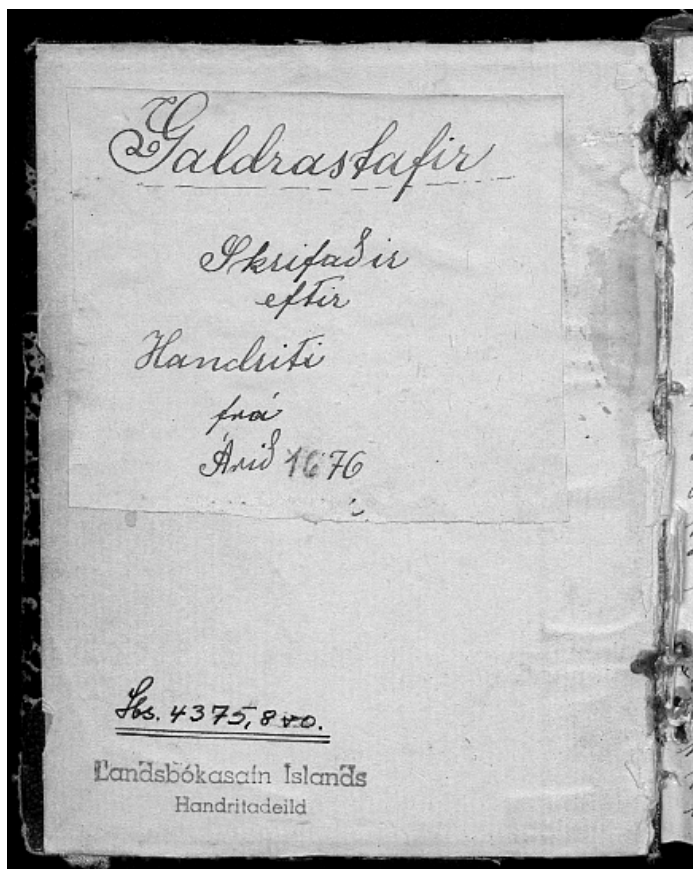 Galdrastafir
Skrifaðir
eftir
Handriti
frá
Árið 1676
Lbs. 4375, 8vo.
Landsbókasafn Íslands
Handritadeild